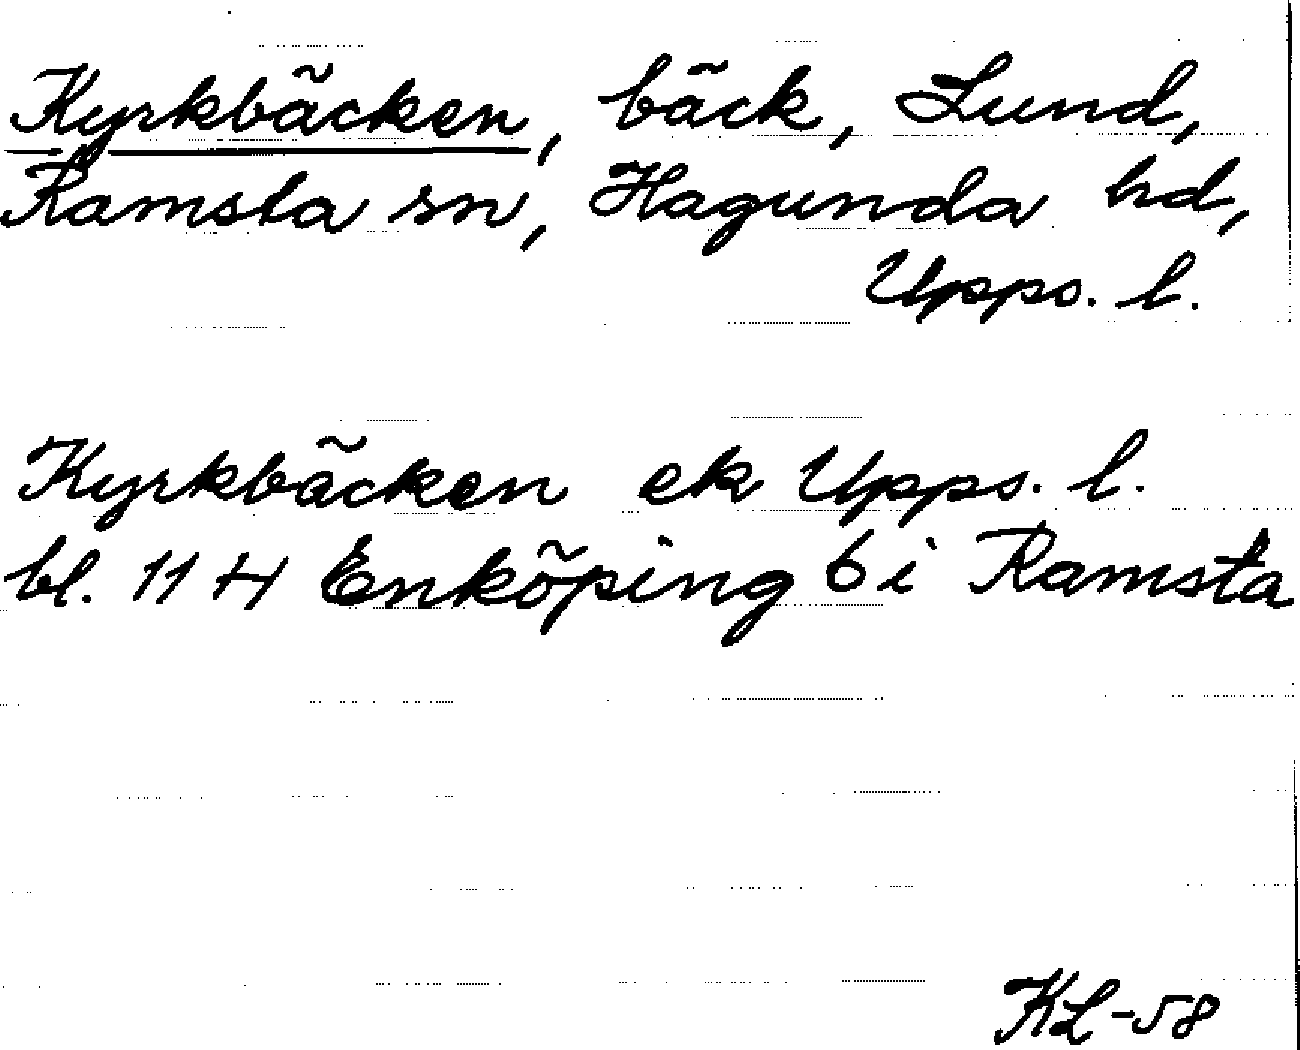 Kyrkbäcken, bäck, Lund,
Ramsta sn, Hagunda hd,
Upps. l.
Kyrkbäcken ek Upps. l.
bl. 11 H Enköping 6 i Ramsta
KL-58